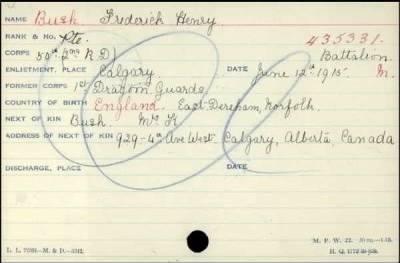 NAME Bush Frederick Henry
RANK & No. Pte. 435331.
CORPS 50th 2nd R.D) Battalion
ENLISTMENT, PLACE Calgary DATE June 12th 1915. M.
FORMER CORPS 1st Dragoon Guards
COUNTRY OF BIRTH England. East Dereham, Norfolk.
NEXT OF KIN Bush. Mrs
ADDRESS OF NEXT OF KIN 929-4th Ave West. Calgary, Alberta, Canada
DISCHARGE, PLACE DATE
M. F. W. 22.
H. Q.